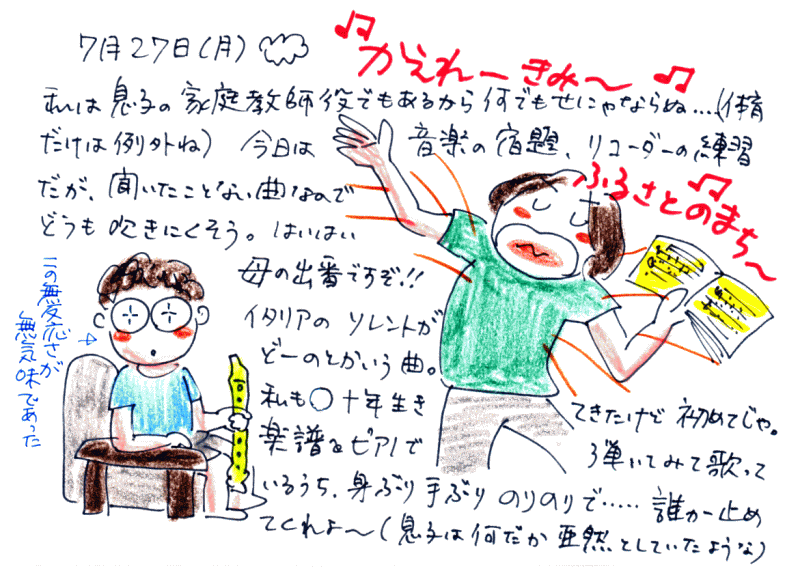 7月27日(月)
♫かえれーきみ〜♫
私は息子の家庭教師役でもあるから何でもせにゃならぬ…(体育
だけは例外ね) 今日は 音楽の宿題、リコーダーの練習
だが、聞いたことない曲なので
どうも吹きにくそう。はいはい
♫ふるさとのまち〜
母の出番ですぞ!!
イタリアの ソレントが
どーのとかいう曲。
私も○十年生き
てきたけど初めてじゃ。
楽譜をピアノで
弾いてみて歌って
いるうち、身ぶり手ぶり のりのりで…‥ 誰か止め
てくれよ〜(息子は何だか 亜然としていたような)
この無反応さが
無気味であった